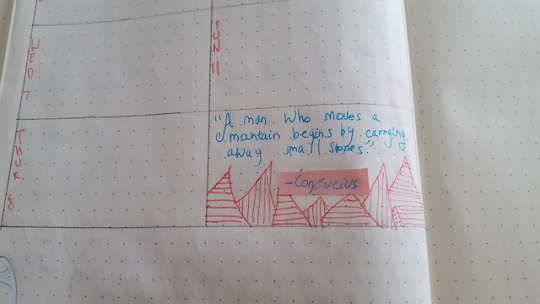 WED 7
SUN 11
THUR 8
"A man who moves a
mountain begins by carrying
away small stones."
-Confucius